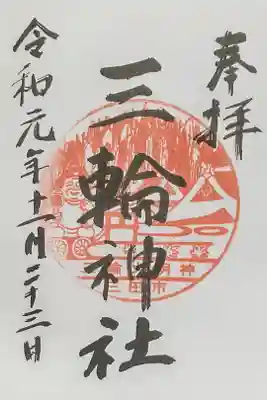 奉拝
三輪神社
令和元年十一月二十三日
三田市